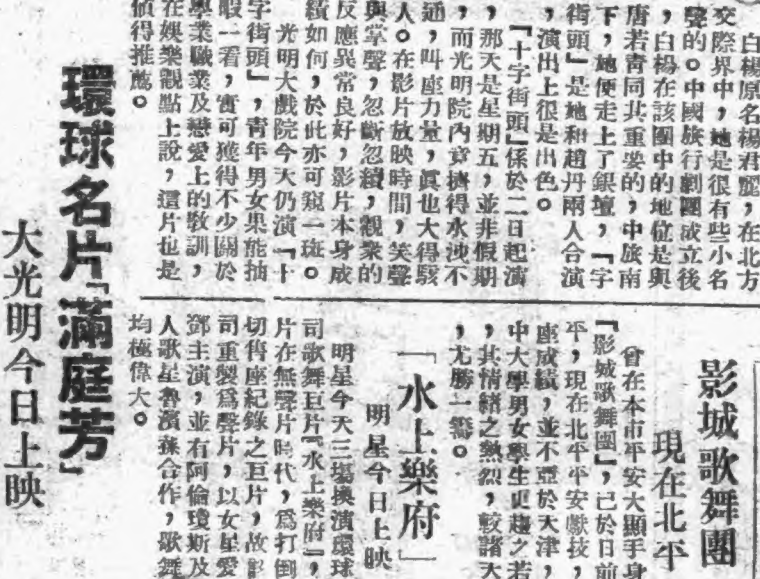 白楊原名楊君麗，在北方
交際界中，她是很有些小名
聲的。中國旅行劇團成立後
，白楊在該團中的地位是與
唐若青同其重要的，中旅南
下，她便走上了銀壇，「字
街頭」是她和趙丹兩人合演
，演出上很是出色。
『十字街頭』係於二日起演
，那天是星期五，並非假期
，而光明院內竟擠得水洩不
通，叫座力量，眞也大得駭
人。在影片放映時間，笑聲
與掌聲，忽斷忽續，觀衆的
反應異常良好，影片本身成
績如何，於此亦可窺一斑。
光明大戲院今天仍演『十
字街頭』，靑年男女果能抽
暇一看，實可獲得不少關於
學業職業及戀愛上的敎訓，
在娛樂觀點上說，這片也是
值得推薦。
環球名片「滿庭芳」
大光明今日上映
影城歌舞團
現在北平
曾在本市平安大顯手身
『影城歌舞團』，已於日前
平，現在北平平安獻技，
座成績，並不亞於天津，
中大學男女學生更趨之若
，其情緖之熱烈，較諸大
，尤勝一籌。
「水上樂府」
明星今日上映
明星今天三塲換演環球
司歌舞巨片『水上樂府』，
片在無聲片時代，爲打倒
切售座紀錄之巨片，故
司重製爲聲片，以女星愛
鄧主演，並有阿倫瓊斯及
人歌星魯濱蓀合作，歌舞
均極偉大。